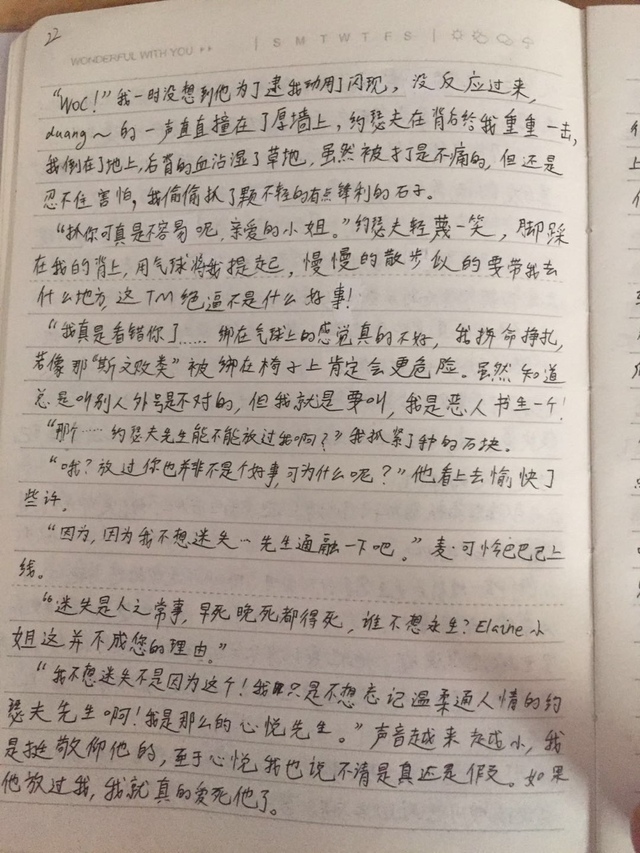 22
WONDERFUL WITH YOU
S M T W T F S
“WOC!”我一时没想到他为了逮我动用了闪现，没反应过来，
duang～的一声直直撞在了厚墙上，约瑟夫在背后给我重重一击，
我倒在了地上，后背的血沾湿了草地，虽然被打是不痛的，但还是
忍不住害怕，我偷偷抓了颗不轻的有点锋利的石子。
“抓你可真是不容易呢，亲爱的小姐。”约瑟夫轻蔑一笑，脚踩
在我的背上，用气球将我提起，慢慢的散步似的要带我去
什么地方，这TM绝逼不是什么好事！
“我真是看错你了……绑在气球上的感觉真的不好，我拼命挣扎，
若像那“斯文败类”被绑在椅子上肯定会更危险。虽然知道
总是叫别人外号是不对的，但我就是要叫，我是恶人书生一个！
“那个……约瑟夫先生能不能放过我啊？”我抓紧了手中的石块。
“哦？放过你也并非不是个好事，可为什么呢？”他看上去愉快了
些许。
“因为，因为我不想迷失…先生通融一下吧。”麦·可怜巴巴己上
线。
“迷失是人之常事，早死晚死都得死，谁不想永生？Elaine小
姐这并不成您的理由。”
“我不想迷失不是因为这个！我只是不想忘记温柔通人情的约
瑟夫先生啊！我是那么的心悦先生。”声音越来越小，我
是挺敬仰他的，至于心悦我也说不清是真还是假。如果
他放过我，我就真的爱死他了。